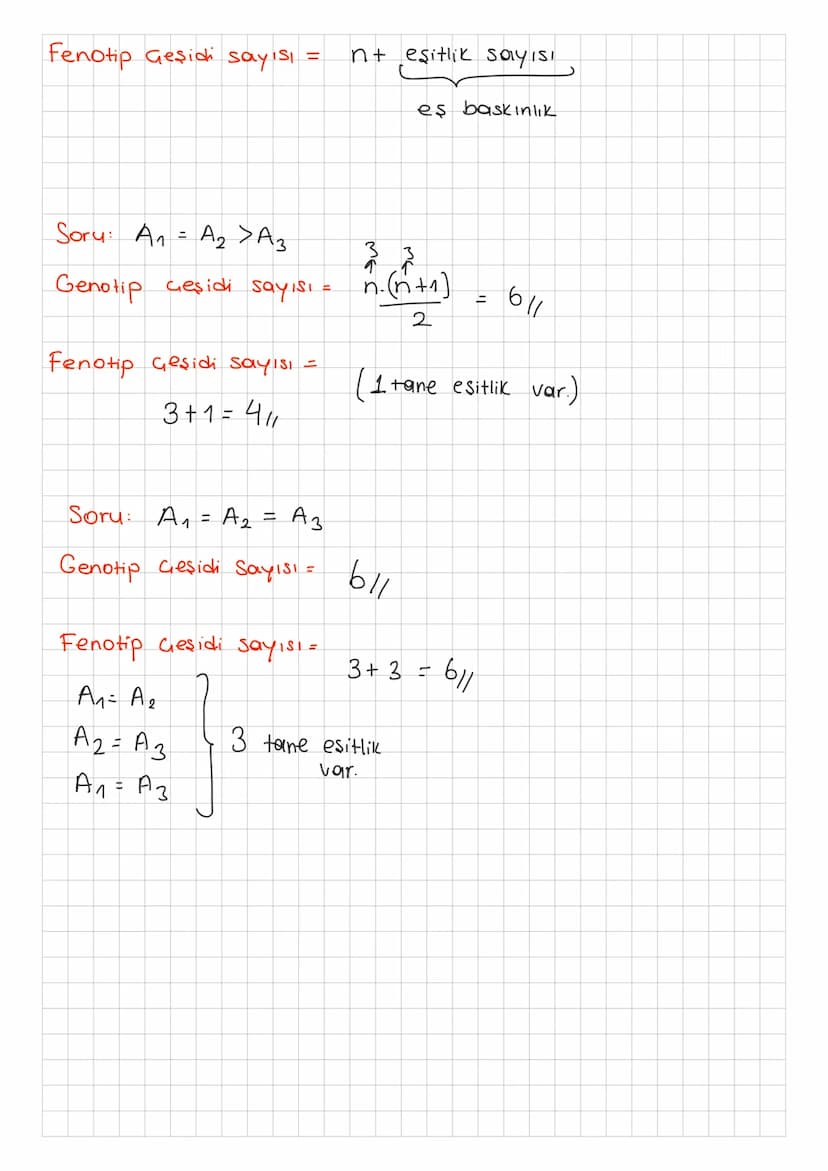 Fenotip çeşidi sayısı = n + eşitlik sayısı
eş baskınlık
Soru: A₁ = A₂ > A₃
3 3
Genotip çeşidi sayısı = n.(n+1) = 6//
2
Fenotip çeşidi sayısı =
(1 tane eşitlik var.)
3+1 = 4//
Soru: A₁ = A₂ = A₃
Genotip çeşidi sayısı = 6//
Fenotip çeşidi sayısı =
3+3 = 6//
A₁ = A₂
A₂ = A₃ 3 tane eşitlik
var.
A₁ = A₃